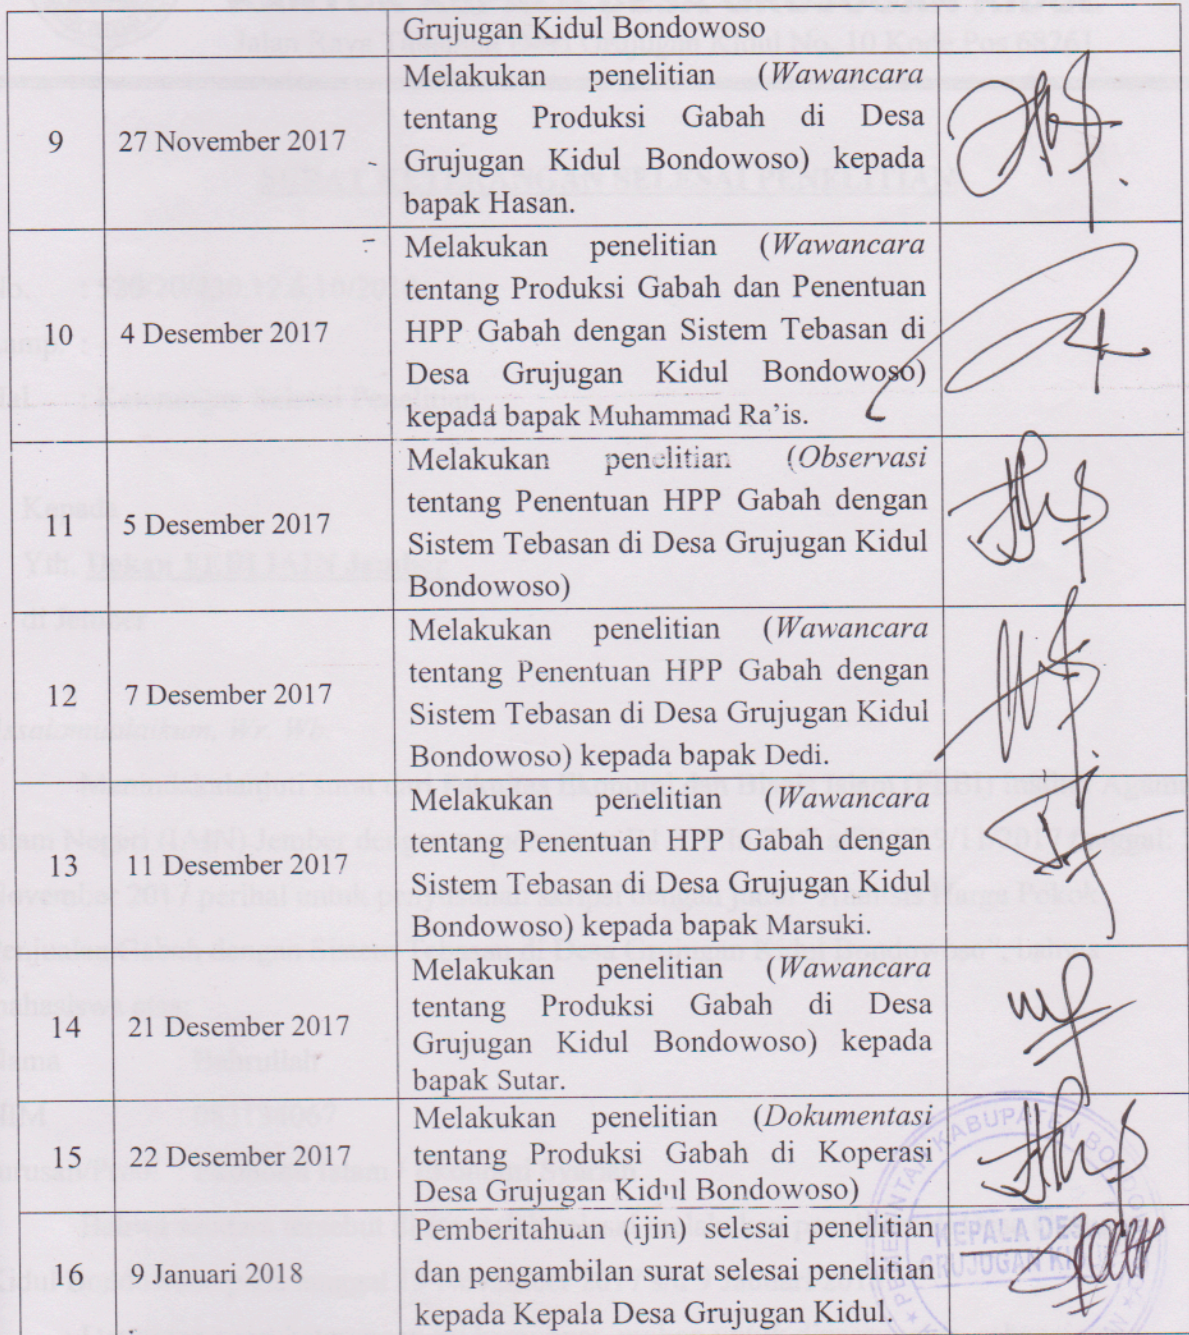 Grujugan Kidul Bondowoso
9
27 November 2017
Melakukan penelitian (Wawancara
tentang Produksi Gabah di Desa
Grujugan Kidul Bondowoso) kepada
bapak Hasan.
10
4 Desember 2017
Melakukan penelitian (Wawancara
tentang Produksi Gabah dan Penentuan
HPP Gabah dengan Sistem Tebasan di
Desa Grujugan Kidul Bondowoso)
kepada bapak Muhammad Ra'is.
11
5 Desember 2017
Melakukan penelitian (Observasi
tentang Penentuan HPP Gabah dengan
Sistem Tebasan di Desa Grujugan Kidul
Bondowoso)
12
7 Desember 2017
Melakukan penelitian (Wawancara
tentang Penentuan HPP Gabah dengan
Sistem Tebasan di Desa Grujugan Kidul
Bondowoso) kepada bapak Dedi.
13
11 Desember 2017
Melakukan penelitian (Wawancara
tentang Penentuan HPP Gabah dengan
Sistem Tebasan di Desa Grujugan Kidul
Bondowoso) kepada bapak Marsuki.
14
21 Desember 2017
Melakukan penelitian (Wawancara
tentang Produksi Gabah di Desa
Grujugan Kidul Bondowoso) kepada
bapak Sutar.
15
22 Desember 2017
Melakukan penelitian (Dokumentasi
tentang Produksi Gabah di Koperasi
Desa Grujugan Kidul Bondowoso)
16
9 Januari 2018
Pemberitahuan (ijin) selesai penelitian
dan pengambilan surat selesai penelitian
kepada Kepala Desa Grujugan Kidul.
KEPALA DESA
GRUJUGAN KIDUL